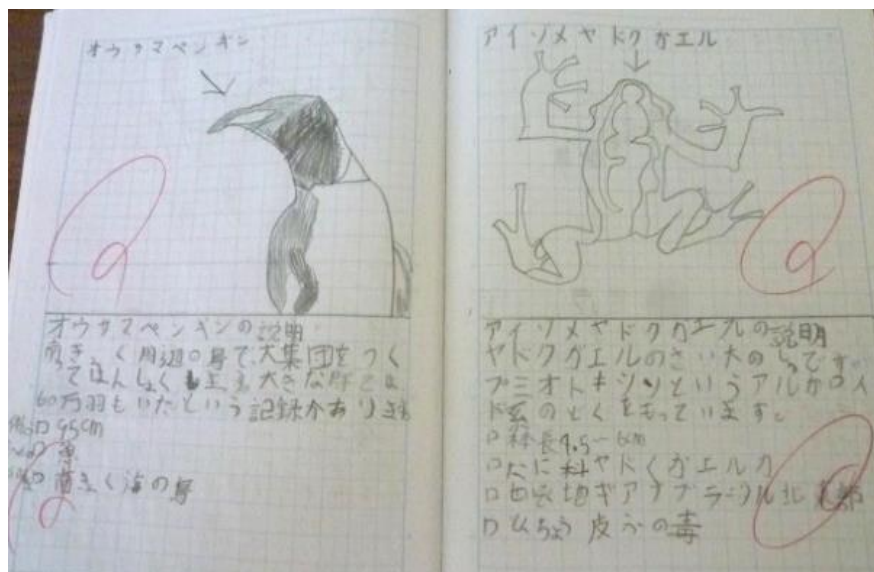 オウサマペンギン
オウサマペンギンの説明
南きょく周辺の島で、大集団をつく
ってはんしょくします。大きな群では
60万羽もいたという記録があります
95cm
南きょく海の島
アイゾメヤドクガエル
アイゾメヤドクガエルの説明
ヤドクガエルのさい大のしゅです。
プミオトキシンというアルカロイ
ド系のどくをもっています。
口体長4.5～6cm
ヤドクガエル
ギアナブラジル北東部
皮ふの毒